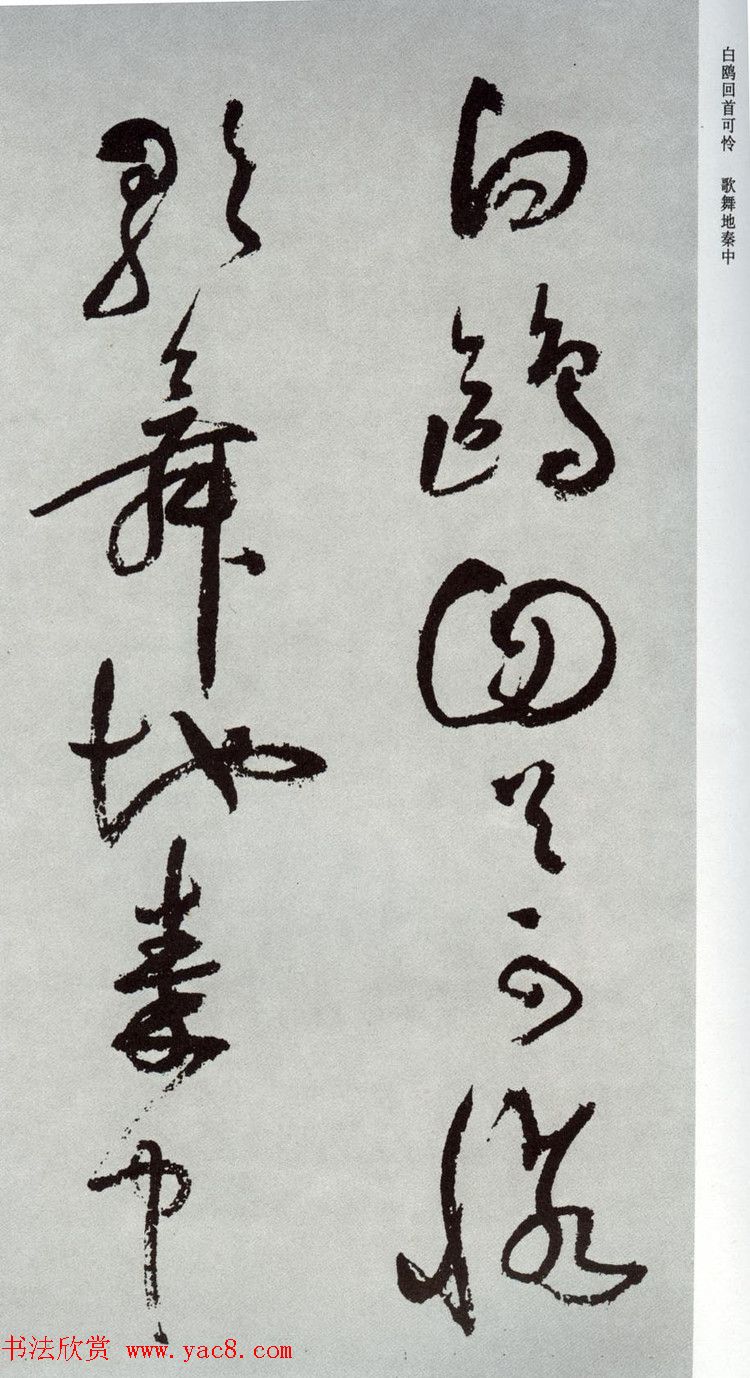 白鸥回首可怜 歌舞地秦中
白鷗回首可憐
歌舞地秦中
书法欣赏 www.yac8.com